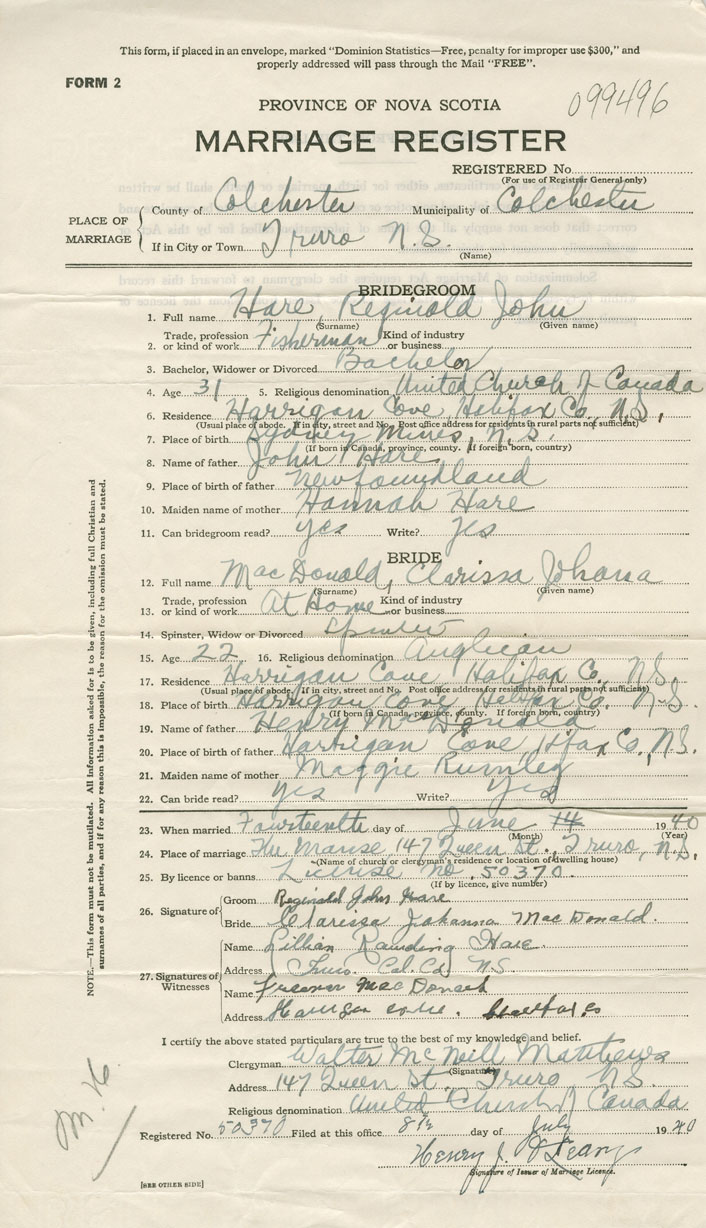 This form, if placed in an envelope, marked "Dominion Statistics—Free, penalty for improper use $300," and
properly addressed will pass through the Mail "FREE".
FORM 2
099496
PROVINCE OF NOVA SCOTIA
MARRIAGE REGISTER
REGISTERED No.
(For use of Registrar General only)
PLACE OF MARRIAGE
County of Colchester Municipality of Colchester
If in City or Town Truro N.S.
(Name)
BRIDEGROOM
1. Full name Hare, Reginald John
(Surname) (Given name)
2. Trade, profession or kind of work Fisherman Kind of industry or business
3. Bachelor, Widower or Divorced Bachelor
4. Age 31 5. Religious denomination United Church of Canada
6. Residence Harrigan Cove, Halifax Co., N.S.,
(Usual place of abode. If in city, street and No. Post office address for residents in rural parts not sufficient)
7. Place of birth Sydney Mines, N.S.
(If born in Canada, province, county. If foreign born, country)
8. Name of father John Hare
9. Place of birth of father Newfoundland
10. Maiden name of mother Hannah Hare
11. Can bridegroom read? yes Write? yes
BRIDE
12. Full name MacDonald, Clarissa Johana
(Surname) (Given name)
13. Trade, profession or kind of work At Home Kind of industry or business
14. Spinster, Widow or Divorced Spinster
15. Age 22 16. Religious denomination Anglican
17. Residence Harrigan Cove, Halifax Co., N.S.
(Usual place of abode. If in city, street and No. Post office address for residents in rural parts not sufficient)
18. Place of birth Harrigan Cove, Halfax Co. N.S.
(If born in Canada, province, county. If foreign born, country)
19. Name of father Henry McDonald
20. Place of birth of father Harrigan Cove, Hfax Co., N.S.
21. Maiden name of mother Maggie Rumley
22. Can bride read? Yes Write? Yes
23. When married Fourteenth day of June 14 1940
(Month) (Year)
24. Place of marriage The Manse, 147 Queen St., Truro, N.S.
(Name of church or clergyman's residence or location of dwelling house)
25. By licence or banns License No. 50370
(If by licence, give number)
26. Signature of
Groom Reginald John Hare
Bride Clarissa Johanna MacDonald.
27. Signatures of Witnesses
Name Lillian Hare
Address Truro. Col. Co. N S
Name MacDonald
Address Harrigan cove. Halifax Co
I certify the above stated particulars are true to the best of my knowledge and belief.
Clergyman Walter McNeill Matthews
(Signature)
Address 147 Queen St. Truro N.S.
Religious denomination United Church of Canada
Registered No. 50370 Filed at this office 8th day of July 1940
Henry J. O'Leary
Signature of Issuer of Marriage Licence.
[SEE OTHER SIDE]
NOTE.—This form must not be mutilated. All Information asked for is to be given, including full Christian and
surnames of all parties, and if for any reason this is impossible, the reason for the omission must be stated.